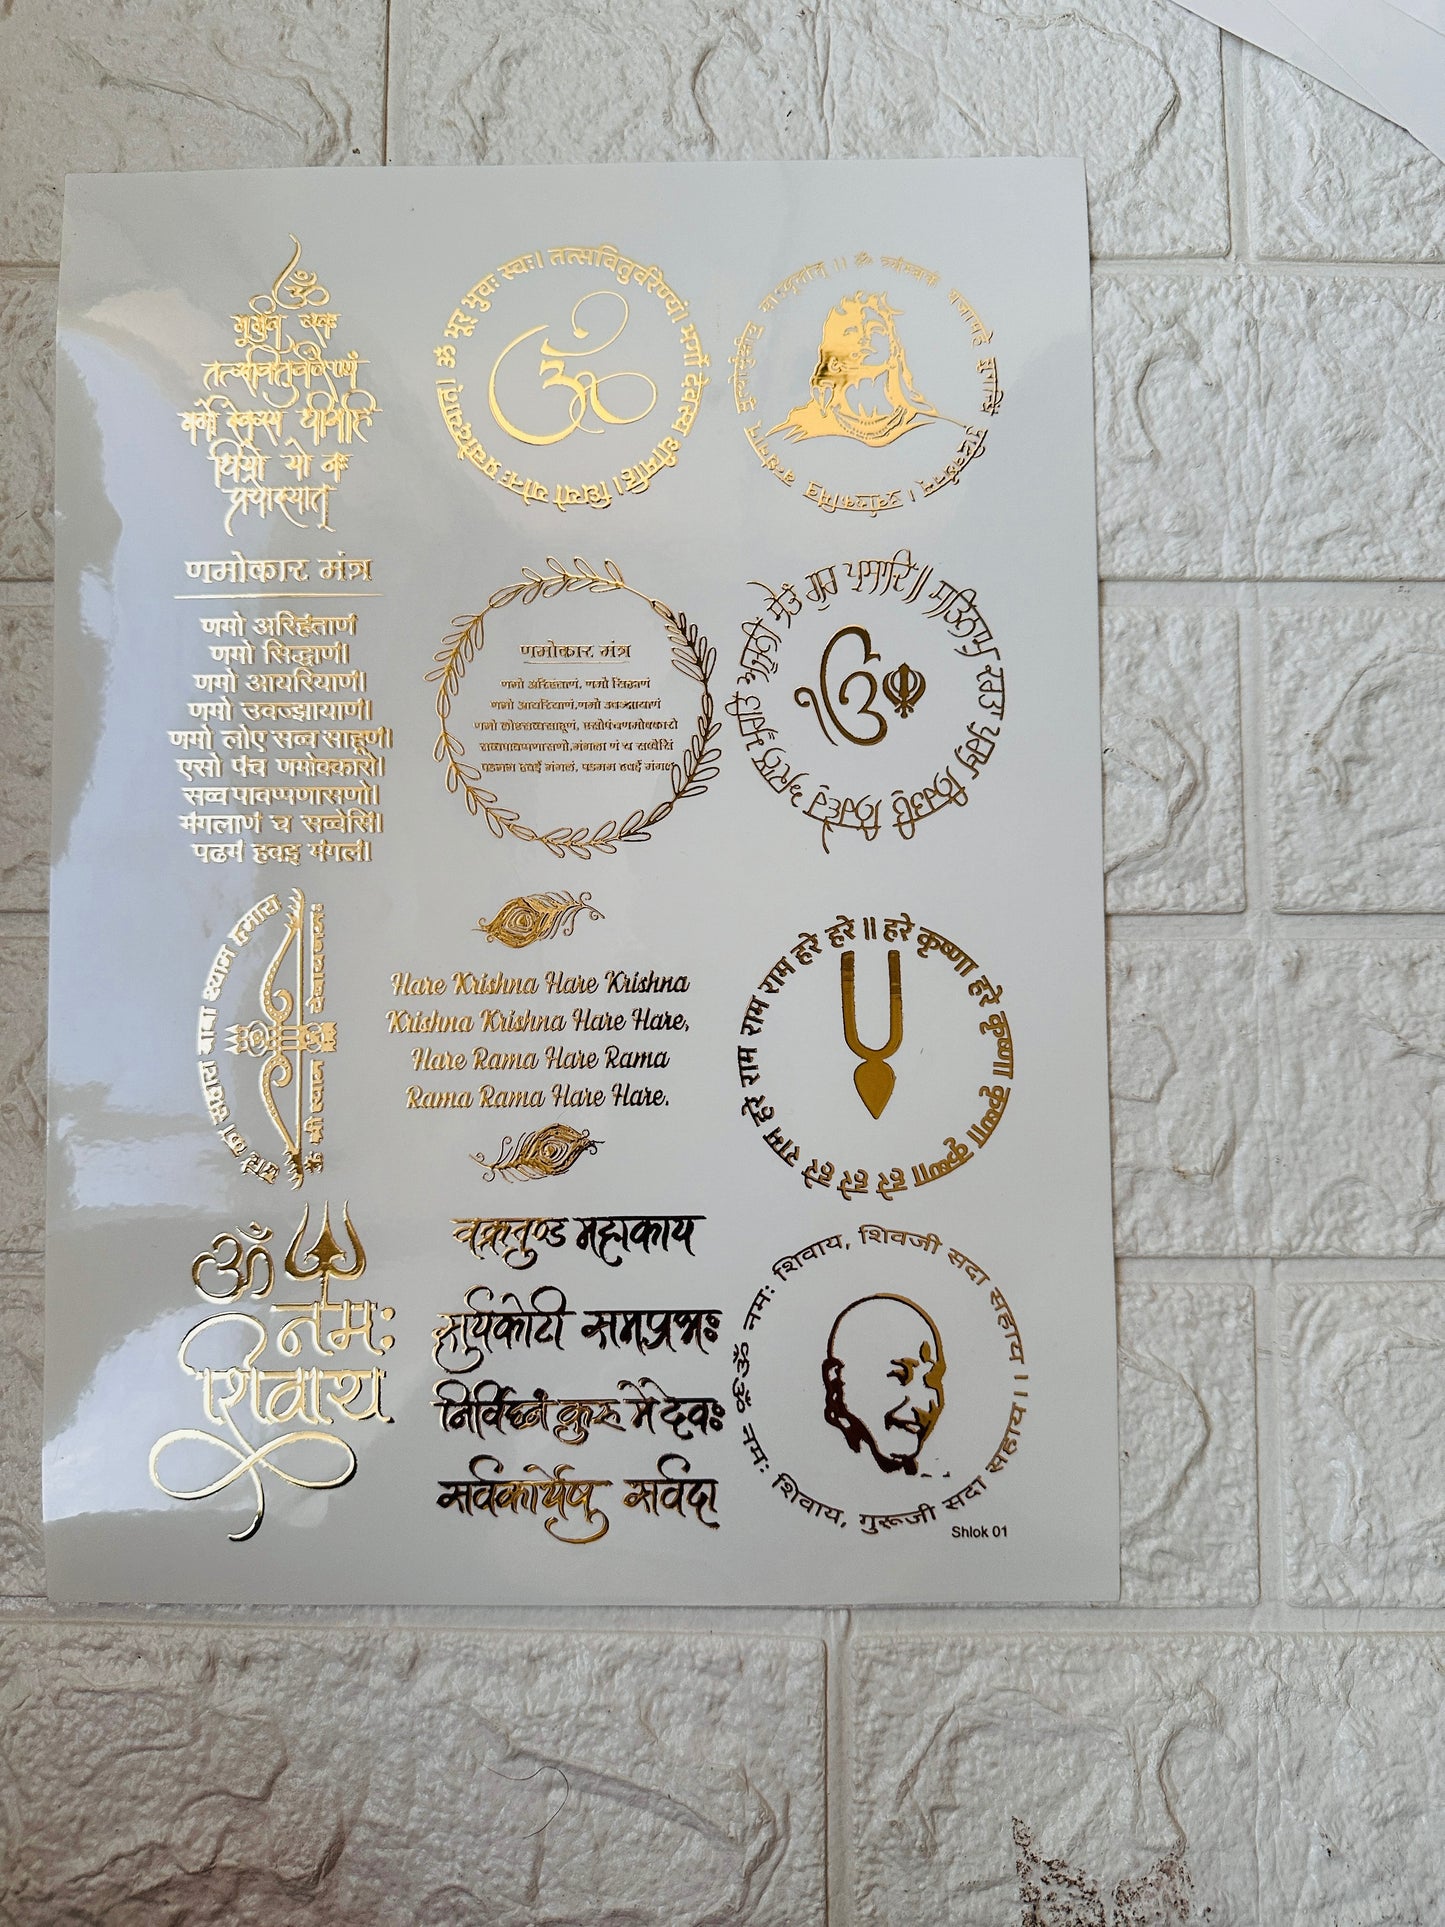 ॐ
तत्सवितुर्वरेण्यं
धियो यो नः
ॐ भूर् भुवः स्वः। तत्सवितुर्वरेण्यं। भर्गो देवस्य धीमहि। धियो योनः प्रचोदयात्।
ॐ
णमोकार मंत्र
णमो अरिहंताणं
णमो सिद्धाणं।
णमो आयरियाणं।
णमो उवज्झायाणं।
णमो लोए सव्व साहूणं।
एसो पंच णमोक्कारो।
सव्व पावप्पणासणो।
मंगलाणं च सव्वेसिं।
पढमं हवइ मंगलं।
णमोकार मंत्र
णमो अरिहंताणं, णमो सिद्धाणं
णमो आयरियाणं,णमो उवज्झायाणं
ੴ
ਗੁਰ ਪ੍ਰਸਾਦਿ॥ ਸਤਿਨਾਮੁ ਕਰਤਾ ਪੁਰਖੁ ਨਿਰਭਉ ਨਿਰਵੈਰੁ
हारे का सहारा बाबा श्याम हमारा
ॐ श्री श्याम देवाय नमः
Hare Krishna Hare Krishna
Krishna Krishna Hare Hare,
Hare Rama Hare Rama
Rama Rama Hare Hare.
हरे कृष्णा हरे कृष्णा कृष्णा कृष्णा हरे हरे हरे राम हरे राम राम राम हरे हरे॥
ॐ
नमः
शिवाय
वक्रतुण्ड महाकाय
सुर्यकोटी समप्रभः
निर्विघ्नं कुरु मे देवः
सर्वकार्येषु सर्वदा
ॐ नमः शिवाय, शिवजी सदा सहाय।।
ॐ नमः शिवाय, गुरूजी सदा सहाय।
Shlok 01